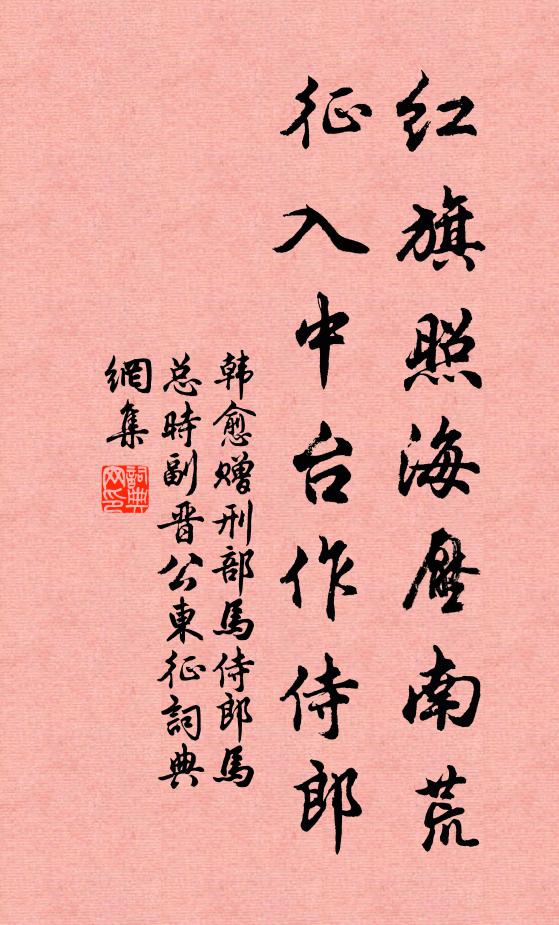 红旗照海壓南荒
征入中台作侍郎
韩愈赠刑部馬侍郎馬
总時副晋公東征詞典
網集
詞典网印